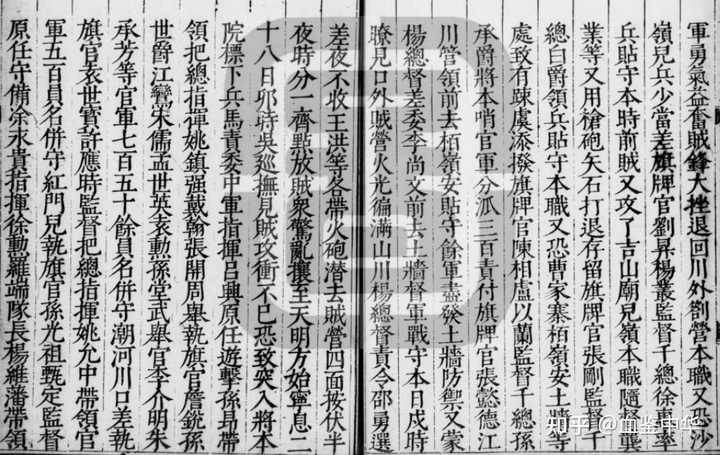 軍勇氣益奮賊鋒大挫退回川外劄營本職又恐沙
嶺兒兵少當差旗牌官劉昇楊叢監督千總徐東率
兵貼守本時前賊又攻丁吉山廟兒嶺本職隨督龔
業等又用槍砲矢石打退存留旗牌官張剛監督千
總白爵領兵貼守本職又恐曹家寨栢嶺安土牆等
處致有踈虞添撥旗牌官陳相盧以蘭監督千總孫
承爵將本哨官軍分派三百責付旗牌官張懿德江
川管領前去栢嶺安貼守餘軍盡發土牆防禦又蒙
楊總督差委李尚文前去土牆督軍戰守本日戍時
瞭見口外賊營火光徧滿山川楊總督責令邵勇選
差夜不收王洪等各帶火砲潛去賊營四面按伏半
夜時分一齊點放賊衆驚亂攘至天明方始寧息二
十八日夘時吳巡撫見賊攻衝不已恐致突入將本
院標下兵馬責委中軍指揮吕興原任遊擊孫昂帶
領把總指揮姚鎮强戴翰張開周舉執旗官詹銳孫
世爵江鸞宋儒孟世英袁勲孫堂武舉官李介明朱
承芳等官軍七百五十餘員名併守潮河川口差執
旗官袁世寶許應時監督把總指揮姚允中帶領官
軍五百員名併守紅門兒執旗官孫光祖甄定監督
原任守備徐永貴指揮徐勲羅端隊長楊維藩帶領
知乎 @血鉴中华